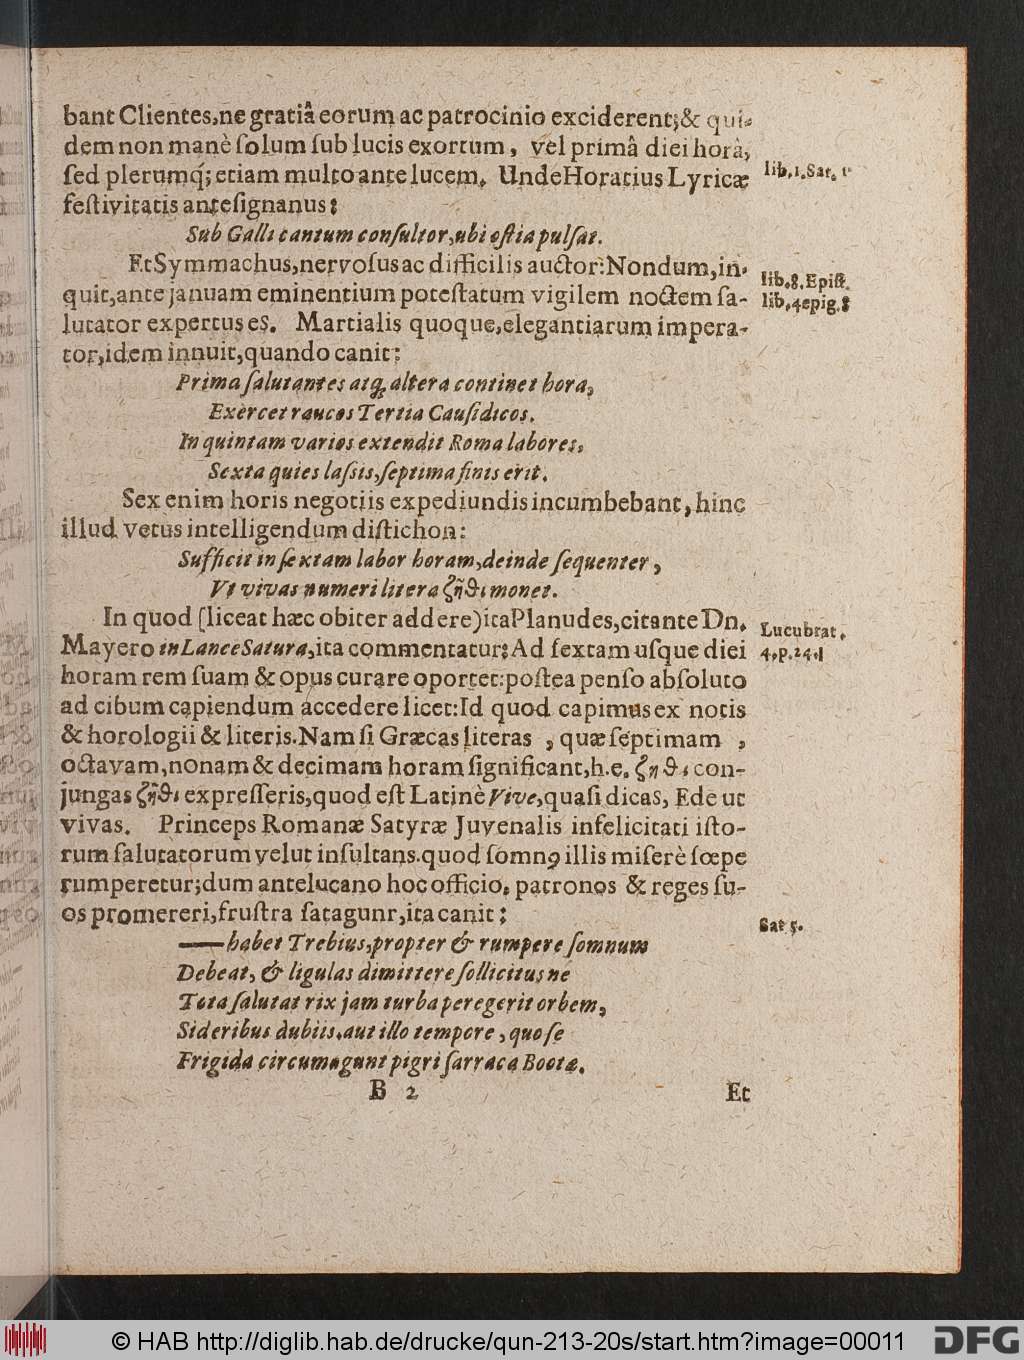 bant Clientes, ne gratiâ eorum ac patrocinio exciderent; & qui-
dem non manè ſolum ſub lucis exortum, vel primâ diei horâ,
ſed plerumq́; etiam multo ante lucem. Unde Horatius Lyricæ
lib. 1. Sat. 1.
feſtivitatis anteſignanus:
Sub Galli cantum conſultor, ubi oſtia pulſat.
Et Symmachus, nervoſus ac difficilis auctor: Nondum, in-
lib. 8. Epiſt.
quit, ante januam eminentium poteſtatum vigilem noctem ſa-
lib. 4 epig. 8
lutator expertus es. Martialis quoque, elegantiarum impera-
tor, idem innuit, quando canit:
Prima ſalutantes atq; altera continet hora,
Exercet raucos Tertia Cauſidicos.
In quintam varios extendit Roma labores,
Sexta quies laſsis, ſeptima finis erit.
Sex enim horis negotiis expediundis incumbebant, hinc
illud vetus intelligendum diſtichon:
Sufficit in ſextam labor horam, deindè ſequenter,
Vt vivas numeri litera ζῆθι monet.
In quod (liceat hæc obiter addere) ita Planudes, citante Dn.
Lucubrat.
Mayero in Lance Satura, ita commentatur: Ad ſextam uſque diei
4. p. 241
horam rem ſuam & opus curare oportet: poſtea penſo abſoluto
ad cibum capiendum accedere licet: Id quod capimus ex notis
& horologii & literis. Nam ſi Græcas literas , quæ ſeptimam ,
octavam, nonam & decimam horam ſignificant, h. e. ζ η θ ι con-
jungas ζῆθι expreſſeris, quod eſt Latinè Vive, quaſi dicas, Ede ut
vivas. Princeps Romanæ Satyræ Juvenalis infelicitati iſto-
rum ſalutatorum velut inſultans. quod ſomnꝯ illis miſerè ſœpe
rumperetur; dum antelucano hoc officio, patronos & reges ſu-
os promereri, fruſtra ſatagunt, ita canit:
Sat 5.
—— habet Trebius, propter & rumpere ſomnum
Debeat, & ligulas dimittere ſollicitus ne
Tota ſalutatrix jam turba peregerit orbem,
Sideribus dubiis, aut illo tempore, quo ſe
Frigida circumagunt pigri ſarraca Bootæ.
B 2 Et
© HAB http://diglib.hab.de/drucke/qun-213-20s/start.htm?image=00011
DFG